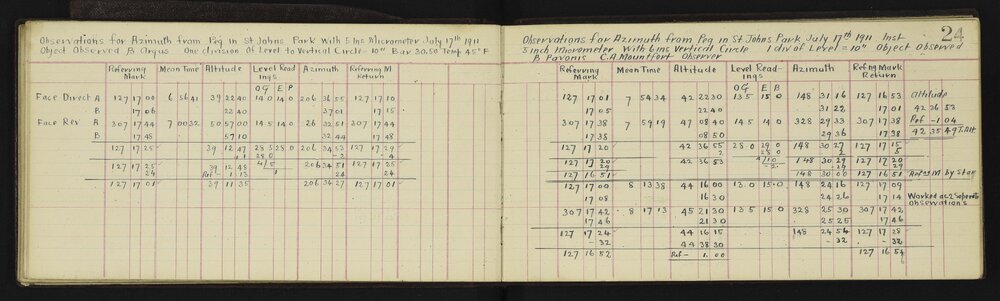 Observations for Azimuth from Peg in St Johns Park With 5 Ins Micrometer July 17th 1911
Object Observed B Argus One division Of Level to Vertical Circle = 10" Bar 30.50 Temp 45° F
Referring Mark Mean Time Altitude Level Readings Azimuth Referring M Return
O G E P
Face Direct A 127 17 00 6 56 41 39 22 40 14 0 14 0 206 36 55 127 17 10
B 17 06 22 40 37 01 17 15
Face Rev A 307 17 44 7 00 32 50 57 00 14 5 14 0 26 32 51 307 17 44
B 17 45 57 10 32 44 17 48
127 17 25 39 12 47 28 5 28 0 206 34 53 127 17 29
+ 1 28 0 - 2 - 4
127 17 25 39 12 48 4/5 206 34 51 127 17 25
24 Ref - 1 13 1 24 24
127 17 01 39 11 35 206 34 27 127 17 01
24
Observations for Azimuth from Peg in St Johns Park July 17th 1911 Inst
5 inch Micrometer With 6 ins Vertical Circle 1 div of Level = 10" Object Observed
B Pavonis C.A. Mountfort Observer
Referring Mark Mean Time Altitude Level Readings Azimuth Refng Mark Return
O G E B
127 17 01 7 54 34 42 22 30 13 5 15 0 148 31 16 127 16 53 Altitude
17 05 22 40 31 22 17 01 42 36 53
307 17 38 7 59 19 47 08 40 14 5 14 0 328 29 33 307 17 38 Ref - 1 04
17 38 08 50 29 36 17 38 42 35 49 T. Alt
127 17 20 42 36 55 28 0 29 0 148 30 27 127 17 15
2 28 0 2 5
127 17 20 42 36 53 4/1 0 148 30 29 127 17 20
29 - 2 29 29
127 16 51 148 30 00 127 16 51 Ref as M by Star
127 17 00 8 13 38 44 16 00 13.0 15.0 148 24 16 127 17 09
17 08 16 30 24 26 17 14 Worked as 2 Seperate
307 17 42 8 17 13 45 21 30 13 5 15 0 328 25 30 307 17 42 Observations
17 46 21 30 25 25 17 46
127 17 24 44 16 15 148 24 54 127 17 28
- 32 44 38 30 - 32 - 32
127 16 52 Ref - 1. 00 127 16 54